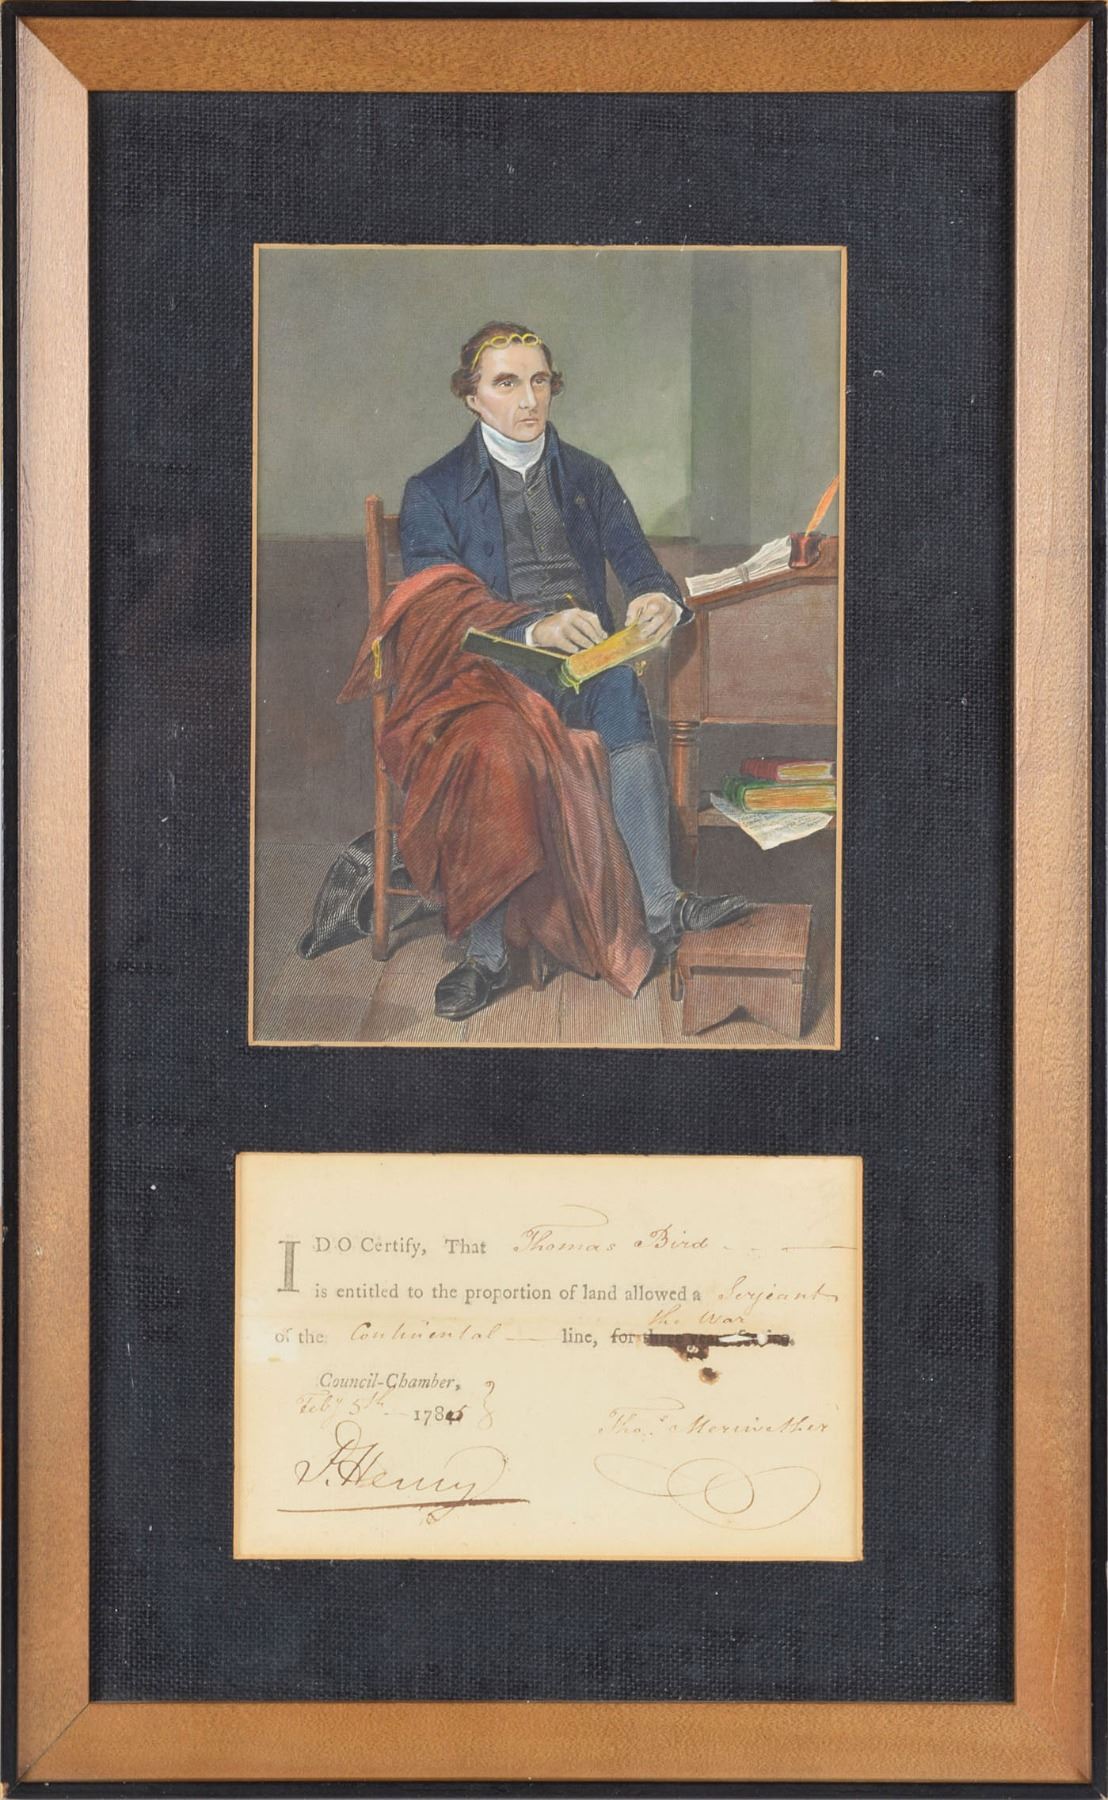 I DO Certify, That Thomas Bird
is entitled to the proportion of land allowed a Serjeant
the War
of the Continental line, for three years
Council-Chamber,
Feby 5th 1786
Thos. Meriwether
P. Henry